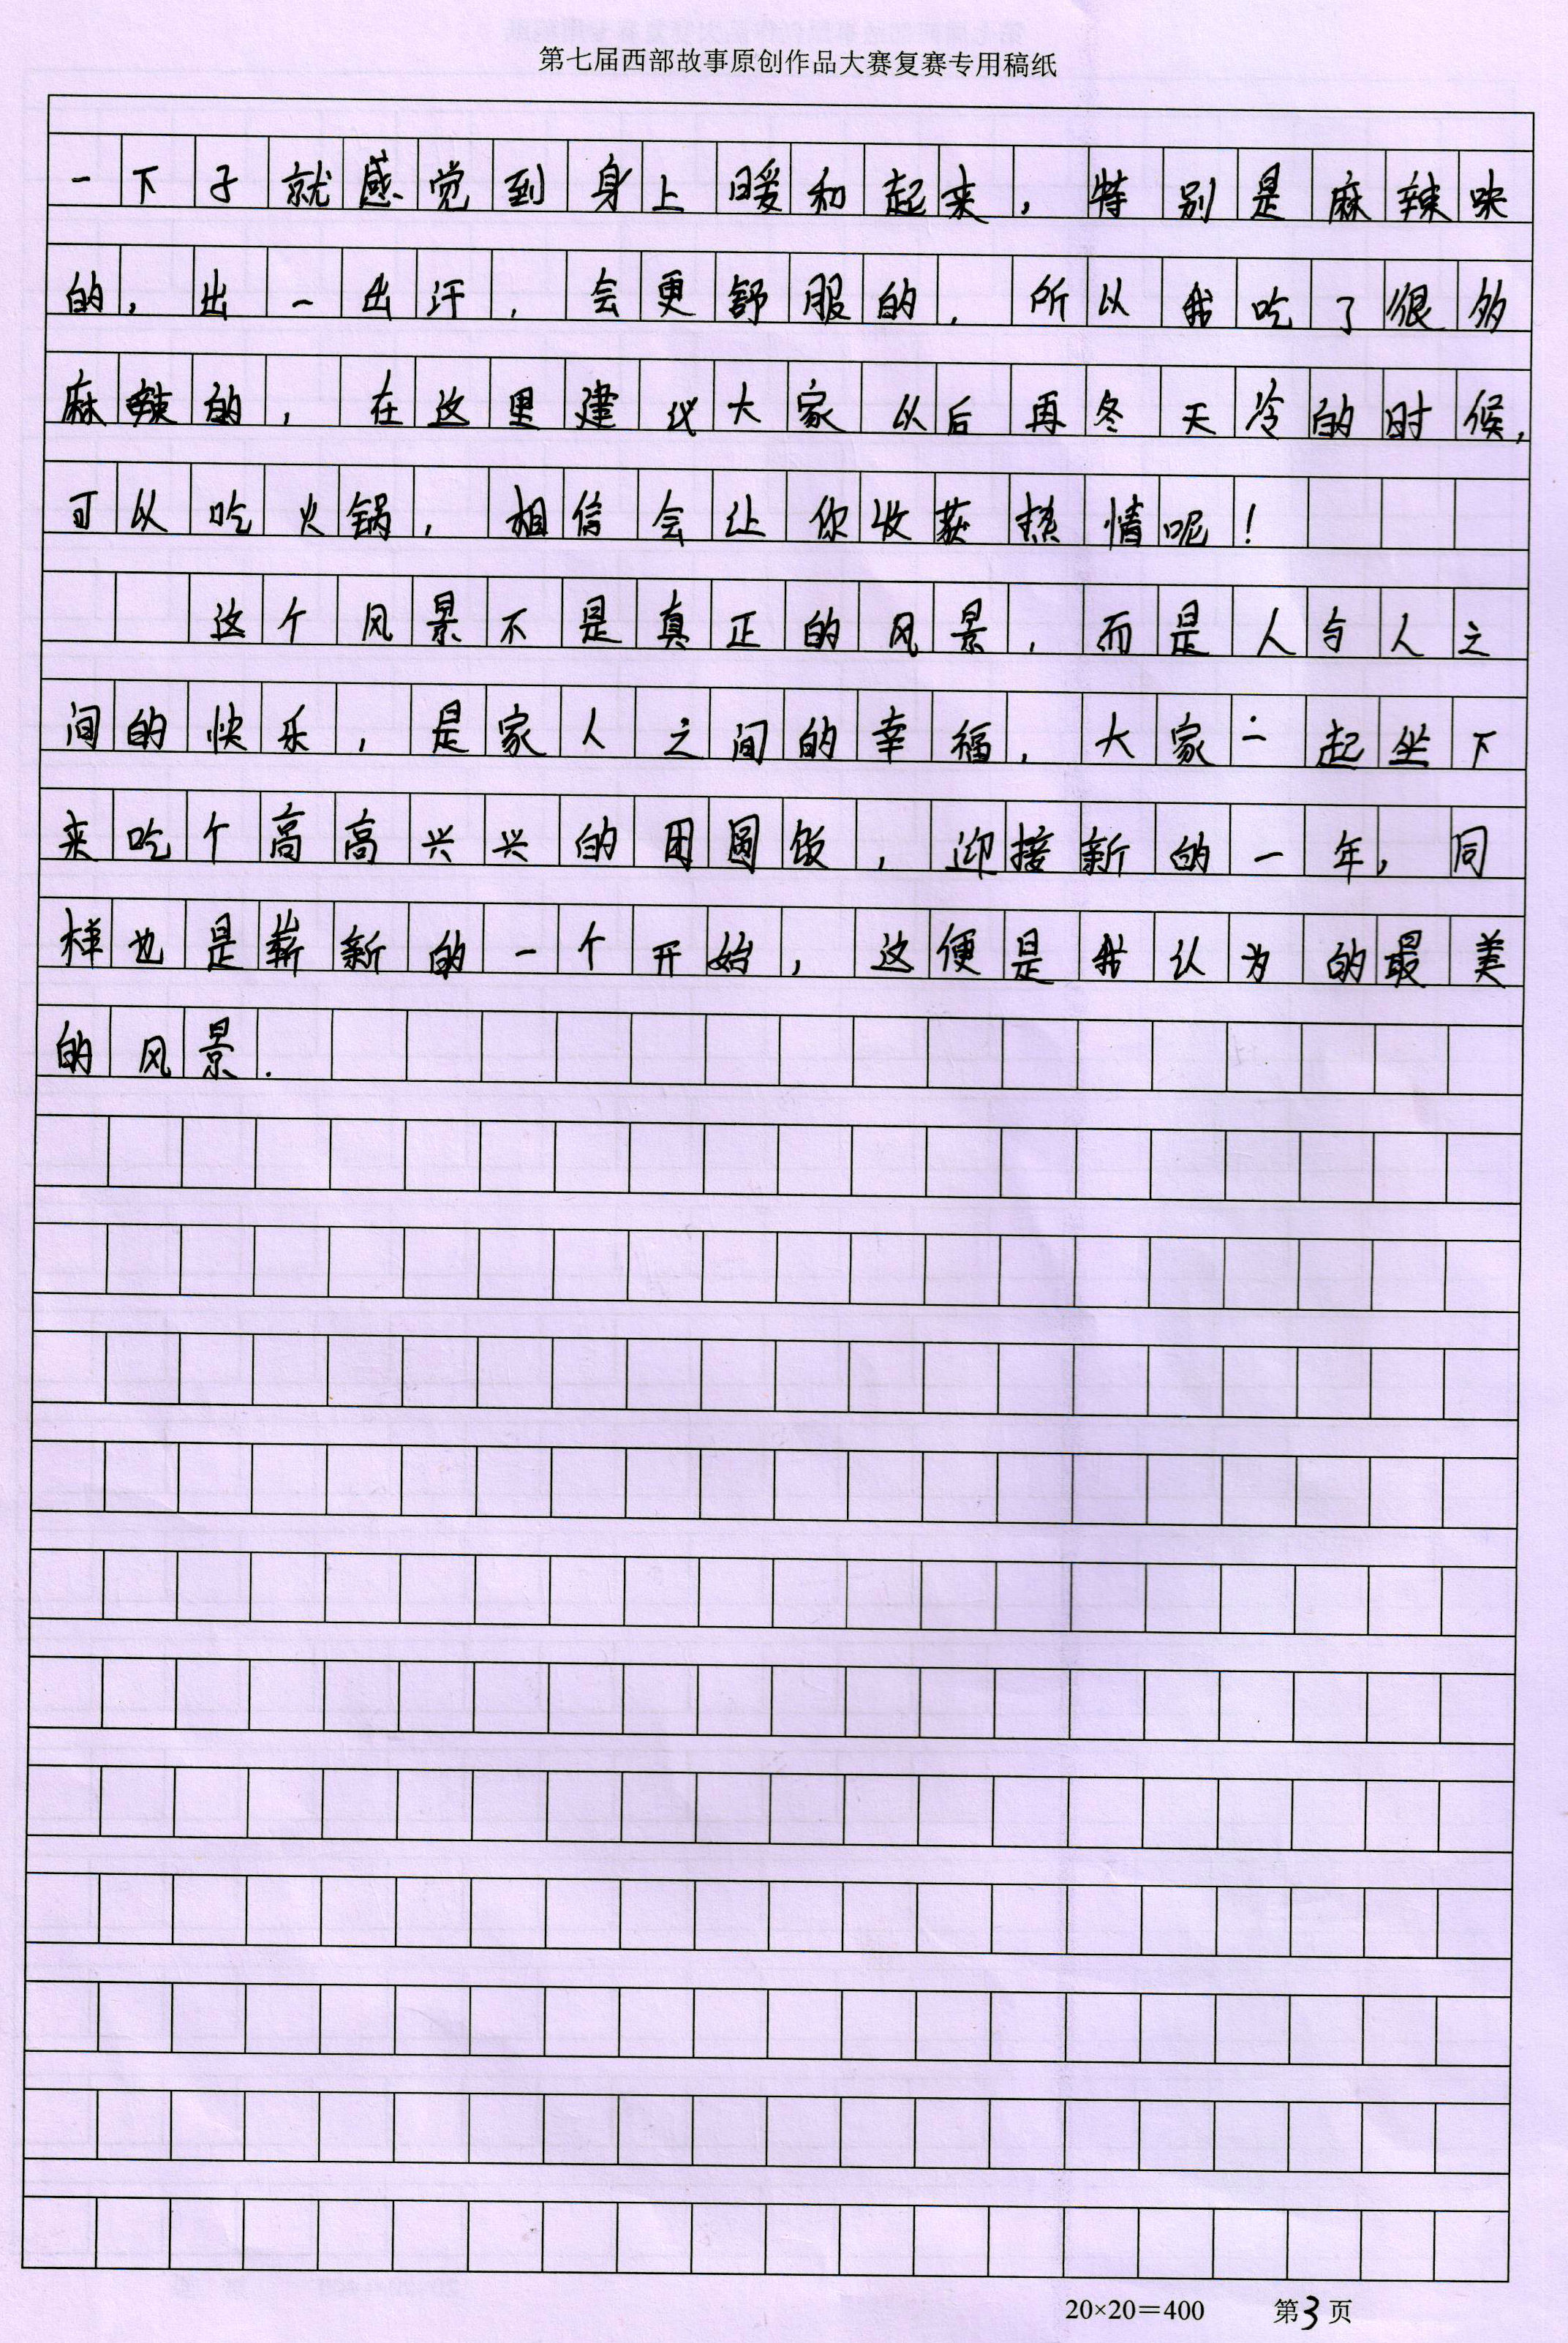 第七届西部故事原创作品大赛复赛专用稿纸
一下子就感觉到身上暖和起来，特别是麻辣味
的，出一出汗，会更舒服的，所以我吃了很多
麻辣的，在这里建议大家以后再冬天冷的时候，
可以吃火锅，相信会让你收获热情呢！
这个风景不是真正的风景，而是人与人之
间的快乐，是家人之间的幸福，大家一起坐下
来吃个高高兴兴的团圆饭，迎接新的一年，同
样也是崭新的一个开始，这便是我认为的最美
的风景.
20×20＝400 第3页